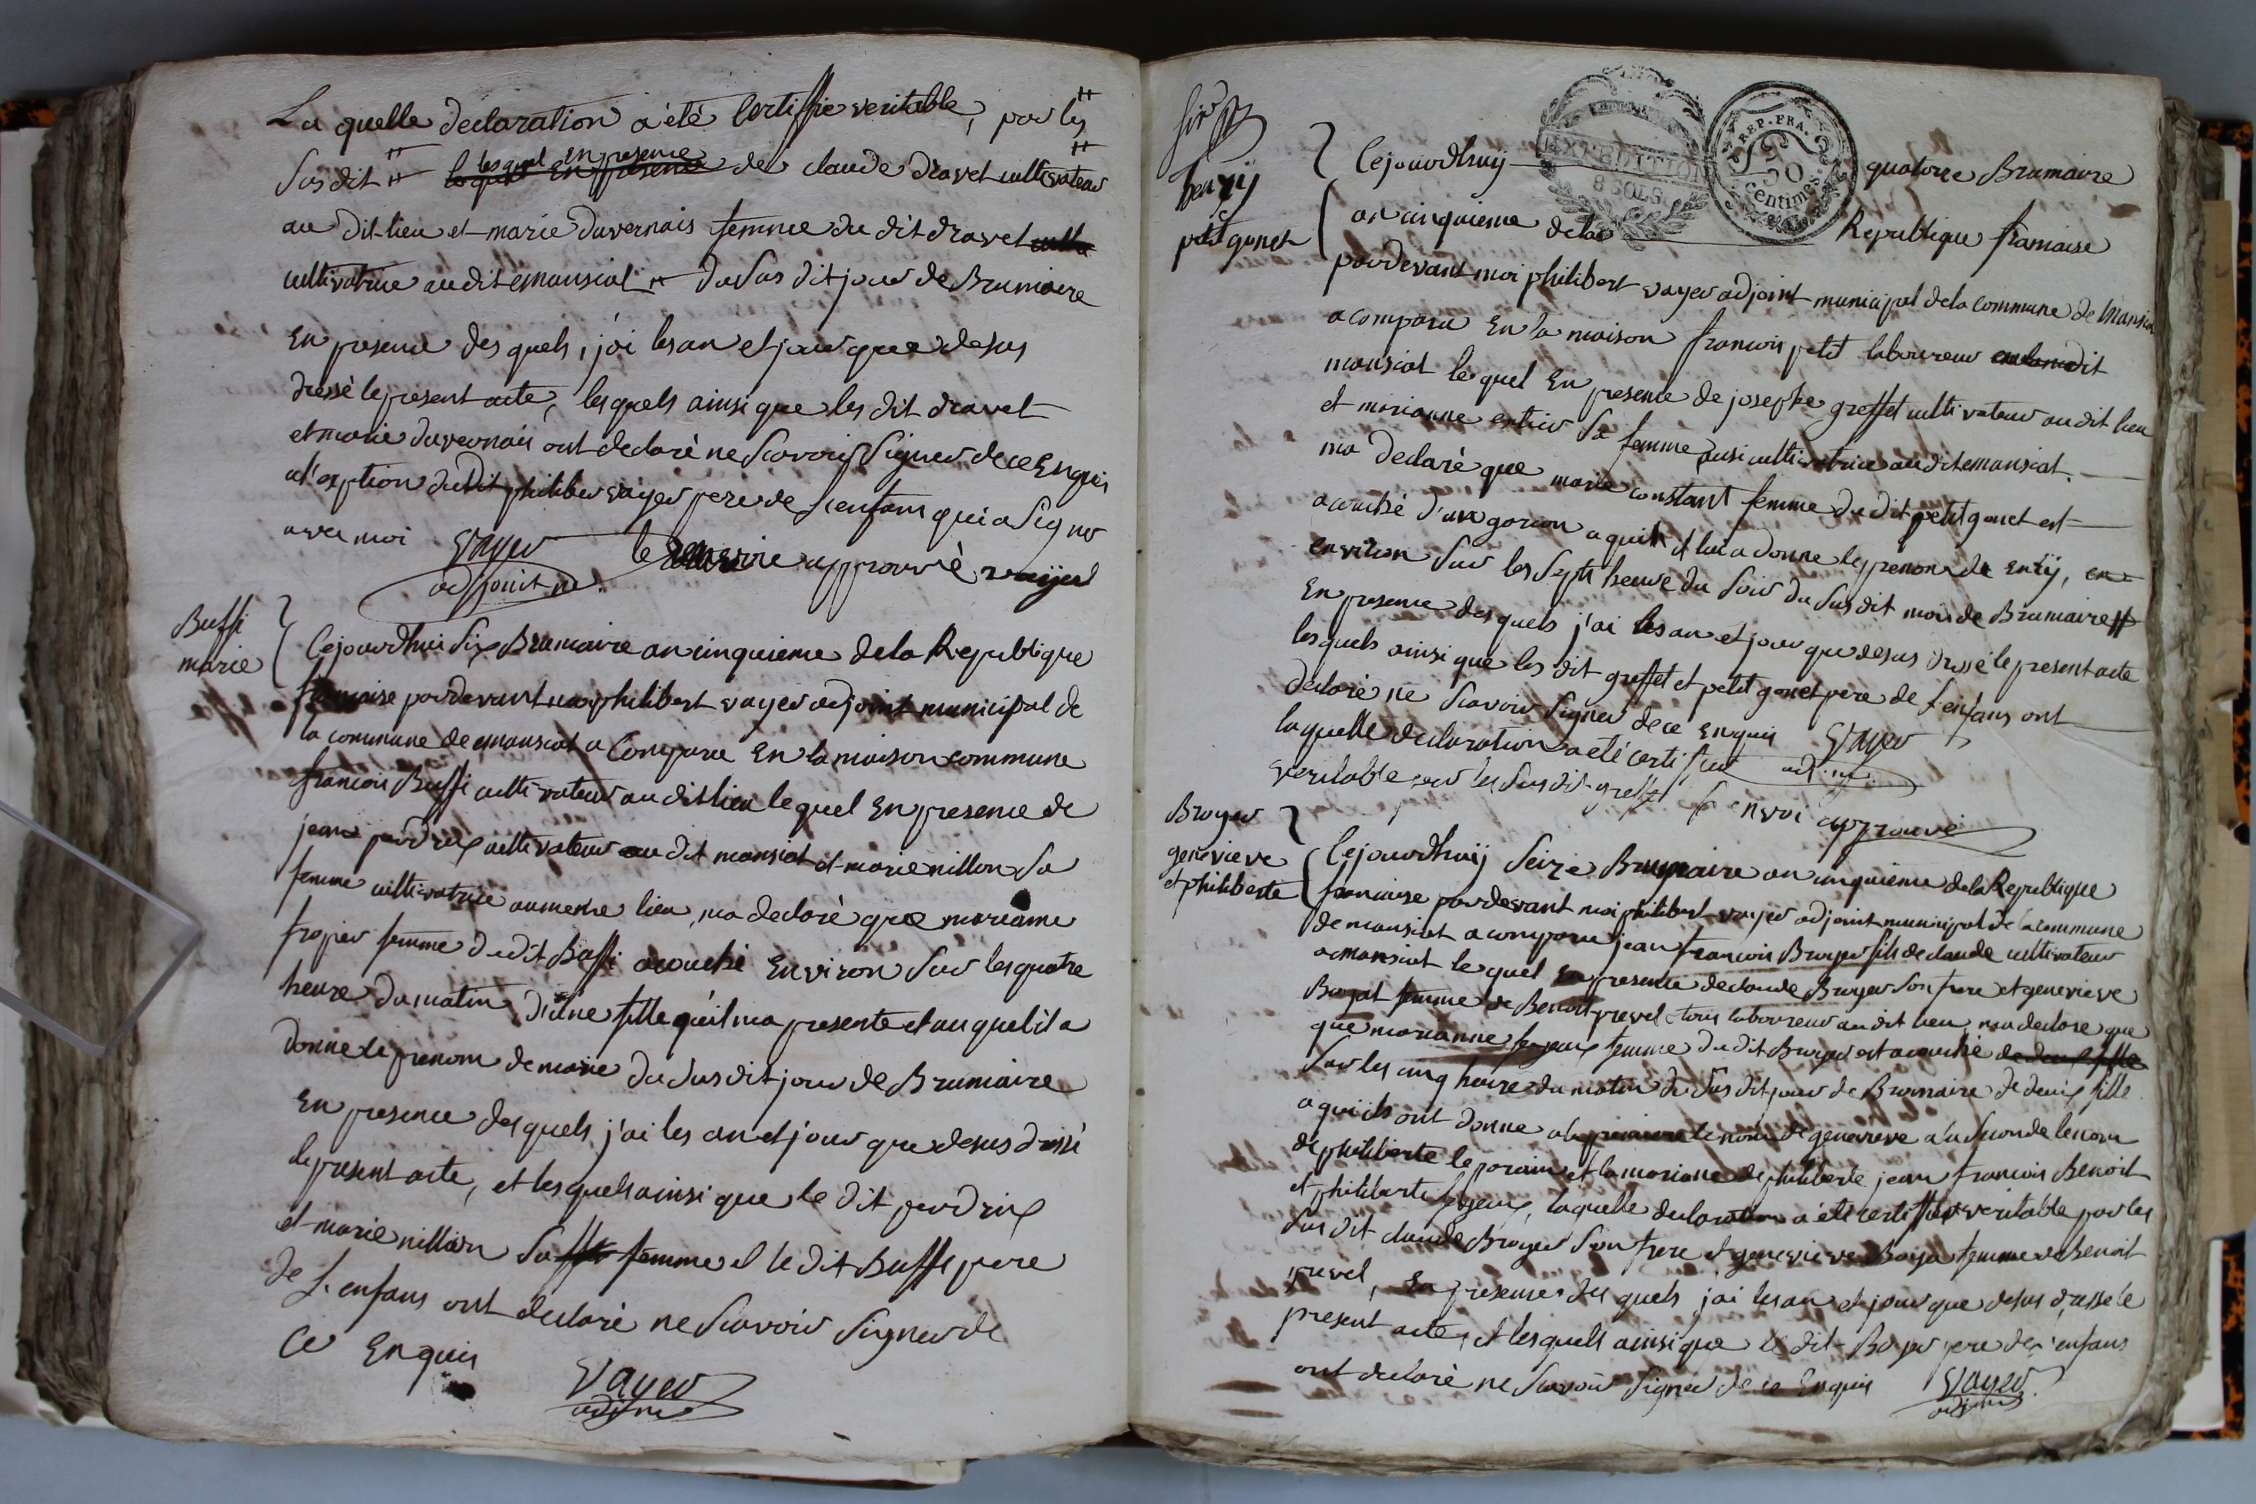 La quelle declaration a été Certiffie veritable, par les
Susdit lesquel en presence de claude dravet cultivateur
au dit lieu et marie duvernais femme du dit dravet
cultivatrice audit emansiat du Sus dit jour de Brumaire
En presence des quels, j'ai les an et jour que desus
dressé le present acte, lesquels ainsi que les dit dravet
et marie duvernais ont declaré ne Scavoir Signer de ce Enquis
a l'exption du dit philiber vayer pere de l'enfans qui a Signé
avec moi Vayer le approuvé vayer
adjoint m.
Buffi
marie
Cejourdhui Six Brumaire an cinquieme de la Republique
francaise pardevant moi philibert vayer adjoint municipal de
la commune de emansiat a Comparu En la maison commune
francois Buffi cultivateur au dit lieu lequel En presence de
jean perdrix cultivateur au dit mansiat et marie nillon Sa
femme cultivatrice au meme lieu, ma declaré que mariame
tropier femme du dit Buffi acouché Environ Sur les quatre
heure du matin d'une fille qu'il ma presente et au quel il a
donne le prenom de marie du Sus dit jour de Brumaire
En presence des quels j'ai les an et jour que desus dressé
le present acte, et lesquels ainsi que le dit perdrix
et marie nillion Sa femme et le dit Buffi pere
de l'enfans ont declaré ne Scavoir Signer de
Ce Enquis
Vayer
adj m
henrÿ
petit gonet
EXPEDITION
8 SOLS
REP. FRA.
50
centimes
Cejourdhuij quatorze Brumaire
an cinquieme de la Republique francaise
pardevant moi philibert vayer adjoint municipal de la commune de Mansiat
a comparu En la maison francois petit laboureur
mansiat lequel En presence de josephe greffet cultivateur au dit lieu
et marianne Sa femme ausi cultivatrice au dit emansiat
ma declaré que marie constant femme du dit petit gonet est
acouché d'un garcon a qui il lui a donne les prenom de enrÿ, en
environ Sur les Sept heure du Soir du Sus dit mois de Brumaire
En presence des quels j'ai les an et jour que desus dressé le present acte
lesquels ainsi que les dit greffet et petit gonet pere de l'enfans ont
declaré ne Scavoir Signer de ce Enquis Vayer
laquelle declaration a été certifie adj. m.
veritable par les Sus dit greffet l'envoi approuvé
Broyer
genevieve
et philiberte
Cejourdhuij Seize Brumaire an cinquieme de la Republique
francaise pardevant moi philibert vayer adjoint municipal de la commune
de mansiat a comparu jean francois Broyer fils de claude cultivateur
a mansiat lequel En presence de claude Broyer Son frere et genevieve
Boyat femme de Benoit prevel tous laboureur au dit lieu ma declare que
que marianne femme du dit Broyer est acouché
Sur les cinq heure du matin du Sus dit jour de Brumaire de deux fille
a qui ils ont donne a la premiere le nom de genevieve a la Seconde le nom
de philiberte le parain et la maraine de philiberte jean francois Benoit
et philiberte laquelle declaration a été certiffiee veritable par les
Sus dit claude Broyer Son frere et genevieve Boya femme de Benoit
prevel, En presence des quels j'ai les an et jour que desus dressé le
present acte, et lesquels ainsi que le dit Broyer pere des enfans
ont declaré ne Scavoir Signer de ce Enquis Vayer
adj m